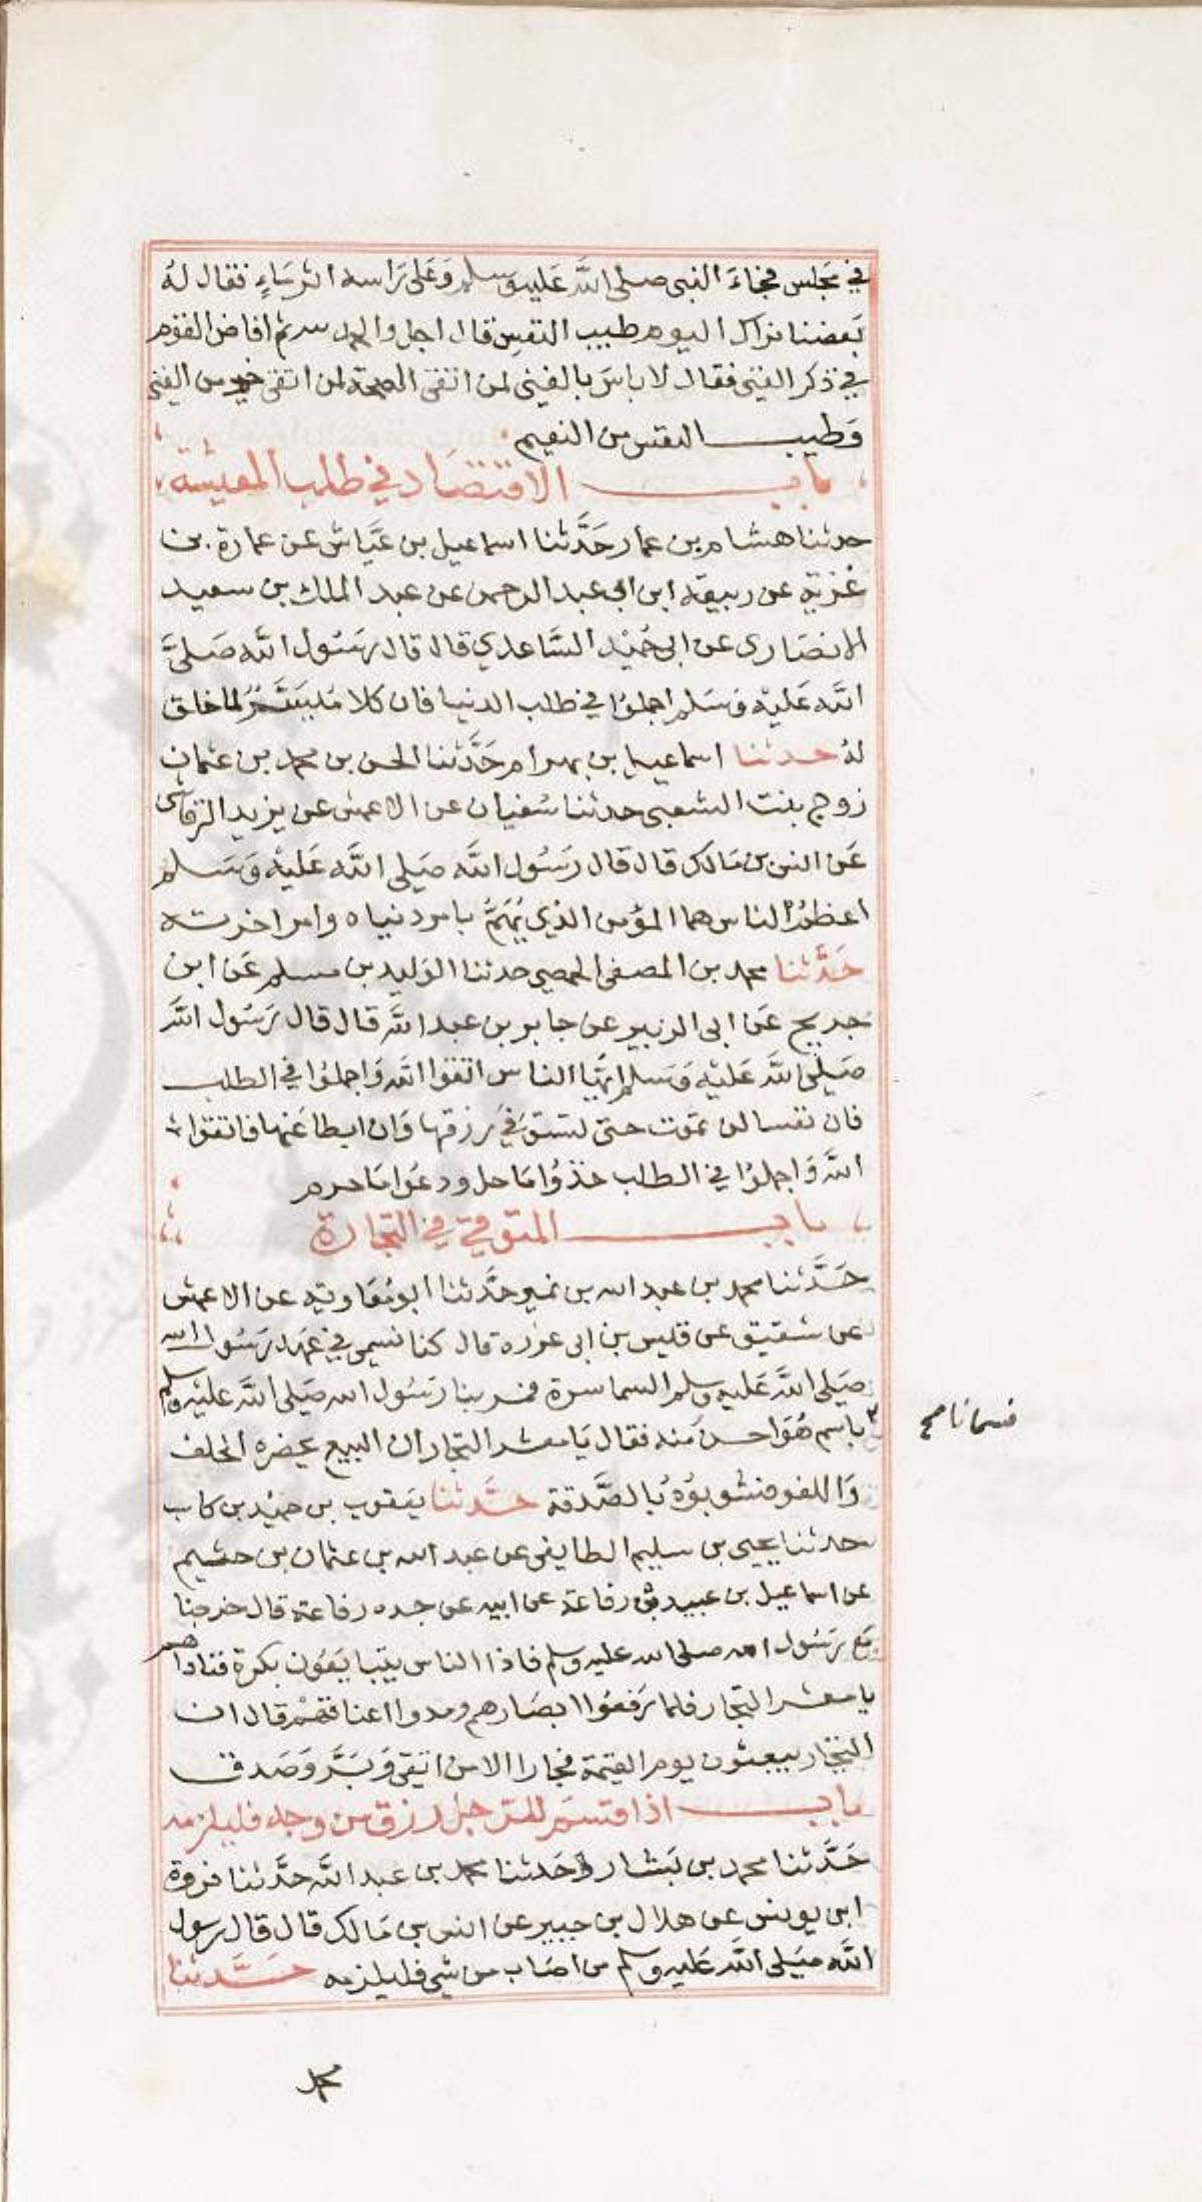 في مجلس فجاءَ النبى صلى اللَّه عَليه وَسلم وَعَلى رَاسه اثر مَاءٍ فقال لهُ
بَعضنا نراك اليوم طيب النفس قال اجل والحمد لله ثم افاض القوم
في ذكر الغنى فقال لا باسَ بالغنى لمن اتقى والصحة لمن اتقى خير من الغنى
وَطيب النفس من النعيم
باب الاقتصَاد في طلب المعيشة
حدثنا هشام بن عمار حَدَّثنا اسماعيل بن عَيَّاش عن عمارة بن
غزية عن ربيعة ابن ابى عبد الرحمن عن عبد الملك بن سعيد
الانصَارى عن ابى حُمَيْد السَّاعدي قال قال رسُول اللَّه صَلىَّ
اللَّه عَليْه وَسَلم اجملوُا في طلب الدنيا فان كلا مُيَسَّرٌ لما خلق
لهُ حدثنا اسماعيل بن بهرام حَدَّثنا الحسن بن محمد بن عثمان
زوج بنت الشعبى حدثنا سُفيان عن الاعمش عن يزيد الرقاشى
عَن انس بن مَالك قال قال رَسُول اللَّه صَلى اللَّه عَليْه وَسَلم
اعظمُ الناس هما المؤمن الذي يُهَمُّ بامر دنياه وامر اخرته
حَدَّثنا محمد بن المصفى الحمصي حدثنا الوَليد بن مسلم عَن ابن
جريج عَن ابى الزبير عن جابر بن عبد اللَّه قال قال رَسُول اللَّه
صَلى اللَّه عَليْه وَسَلم ايَّها الناس اتقوا اللَّه وَاجملوُا في الطلب
فان نفسا لن تموت حتى تستوَفي رزقها وَان ابطا عَنها فاتقوا
اللَّه وَاجملوُا في الطلب خذوُا مَا حل ودعوَا مَا حرم
باب المتوقي في التجارة
حَدَّثنا محمد بن عبد الله بن نمير حدَّثنا ابو مُعَاوية عن الاعمش
عن شقيق عن قليس بن ابى غرزه قال كنا نسمى في عَهد رَسُول الله
صَلى اللَّه عَليه وسَلم السماسرة فمر بنا رَسُول الله صَلى اللَّه عَليْه وسلم
باسم هُوَ احسن مَنه فقال يَا معشر التجار ان البيع يحضره الحلف
وَاللغو فشوبوُهُ بالصَّدقة حدَّثنا يَعقوب بن حمَيْد بن كاسب
حدثنا يحيى بن سليم الطايفى عن عبد الله بن عثمان بن خثيم
عن اسماعيل بن عبيد بن رفاعة عن ابيه عن جده رفاعة قال خرجنا
مَع رَسُول الله صلى الله عليه وسلم فاذا الناس يتبايَعُون بكرة فناداهم
يا معشر التجار فلما رَفعوُا ابصَارهم ومدوا اعناقهمْ قال ان
التجار يبعثون يوم القيمة فجارا الا من اتقى وَبَرَّ وَصَدق
باب اذا قسَم للرَّجل رزق من وجه فليلزمه
حَدَّثنا محمد بن بَشار حَدثنا محمد بن عبد اللَّه حدَّثنا فروة
ابى يونس عن هلال بن جبير عن انس بن مَالك قال قال رسول
اللَّه صَلى اللَّه عَليه وسلم من اصَاب من شي فليلزمه حدَّثنا
محمد
فسمانا صح